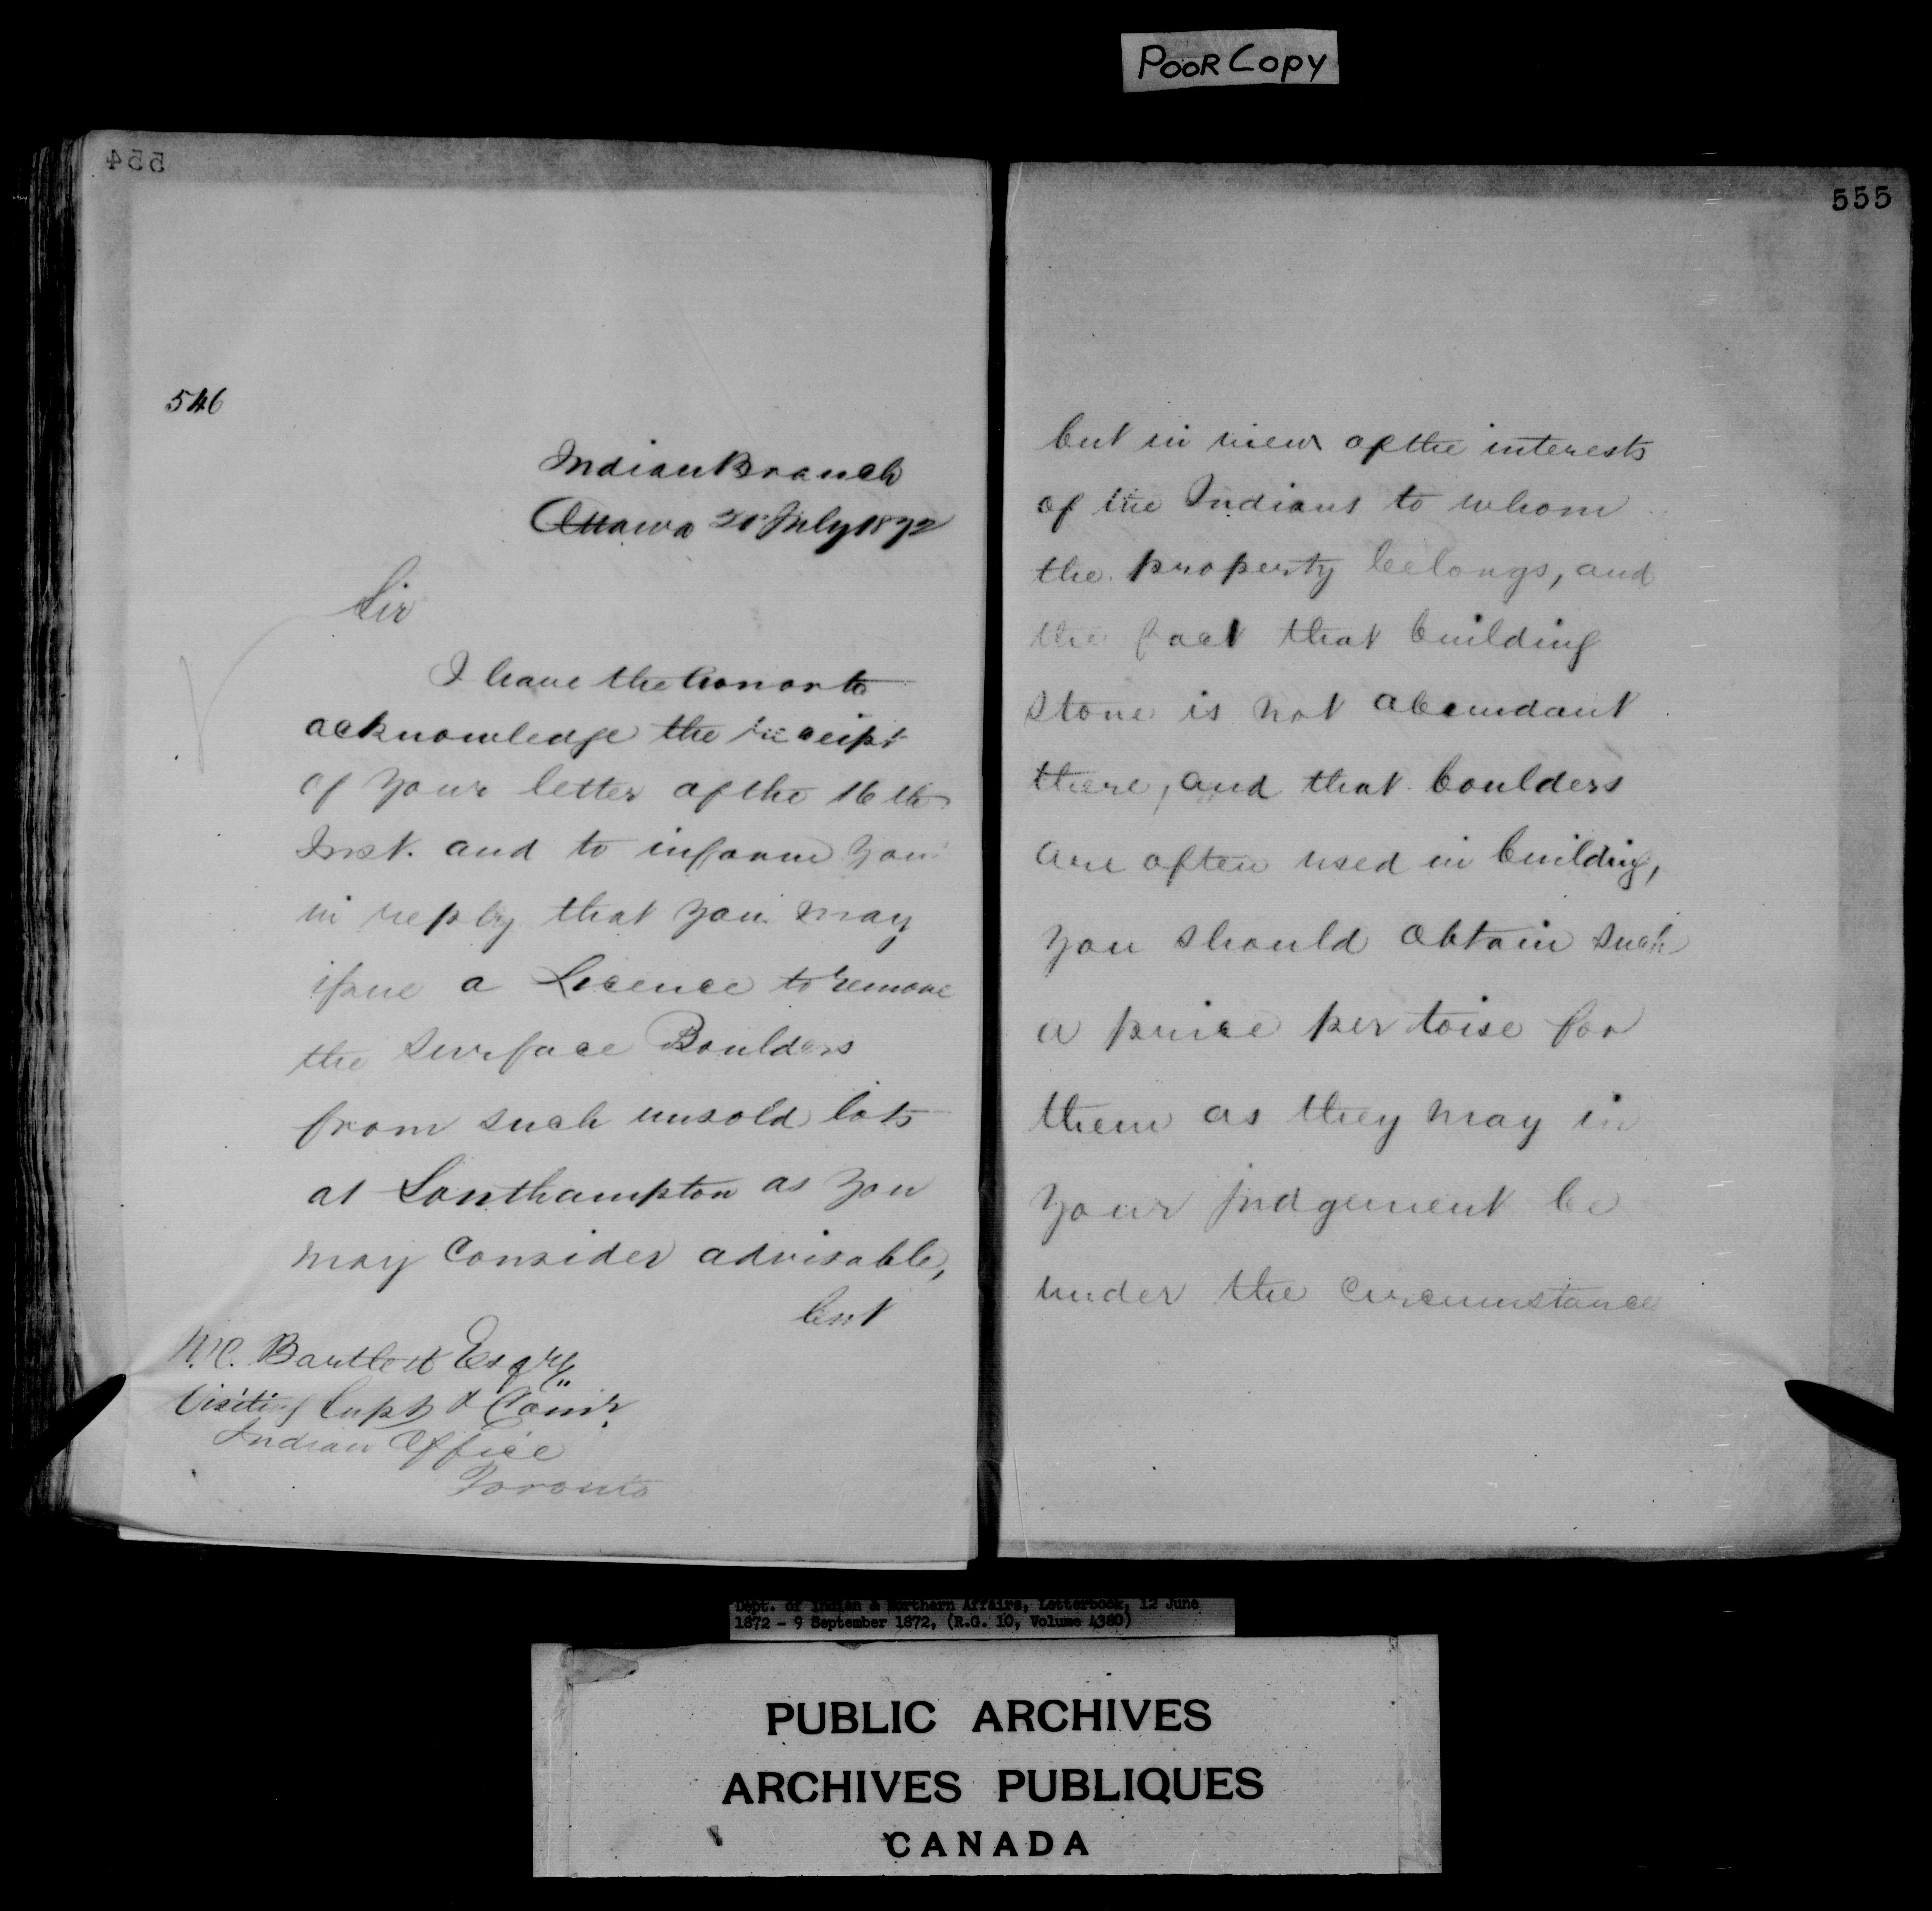 POOR COPY
554
546
Indian Branch
Ottawa July 1872
Sir
I have the honor to
acknowledge the receipt
of your letter of the 16th
Inst. and to inform you
in reply that you may
issue a Licence to remove
the surface Boulders
from such unsold lots
at Southampton as you
may consider advisable,
but
Bartlett Esqre
Visiting Supt & Comr
Indian Office
Toronto
555
but in view of the interests
of the Indians to whom
the property belongs, and
the fact that building
stone is not abundant
there, and that boulders
are often used in building,
you should obtain such
a price per toise for
them as they may in
your judgement be
under the circumstances
Dept. of Indian & Northern Affairs, Letterbook, 12 June
1872 - 9 September 1872, (R.G. 10, Volume 4380)
PUBLIC ARCHIVES
ARCHIVES PUBLIQUES
CANADA